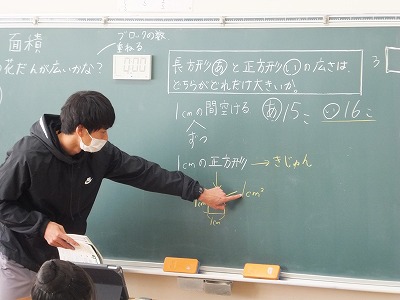 面積
ブロックの数
重ねる
花だんが広いかな?
長方形あと正方形いの広さは、
どちらがどれだけ大きいか。
1cmの間空ける
ずつ
あ15こ
い16こ
1cmの正方形→きじゅん
1cm
1cm
1cm²